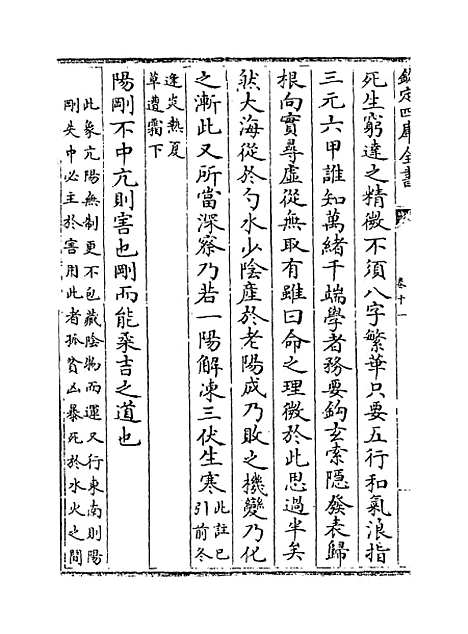 欽定四庫全書
卷十一
死生窮達之精微不須八字繁華只要五行和氣浪指
三元六甲誰知萬緒千端學者務要鈎玄索隱發表歸
根向實尋虛從無取有雖曰命之理微於此思過半矣
然大海從於勺水少陰產於老陽成乃敗之機變乃化
之漸此又所當深察乃若一陽解凍三伏生寒此註已
引前冬
逢炎熱夏
草遭霜下
陽剛不中亢則害也剛而能柔吉之道也
此象亢陽無制更不包藏陰物而運又行東南則陽
剛失中必主於害用此者孤貧凶暴死於水火之間